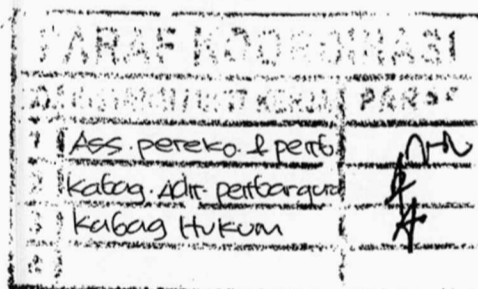 PARAF KOORDINASI
UNIT KERJA PARAF
1 Ass. pereko. & pemb
2 Kabag. Adm. pembangunan
3 Kabag Hukum